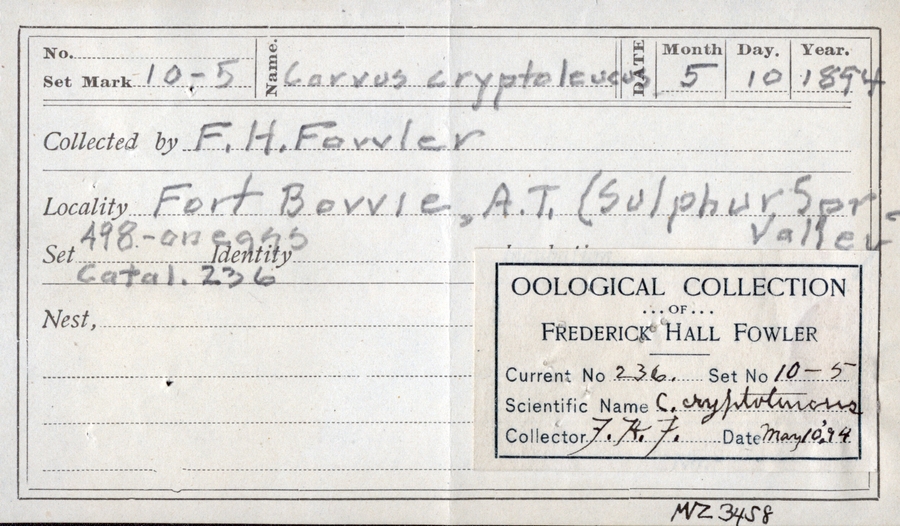 No. Name. DATE Month Day. Year.
Set Mark 10-5 Corvus cryptoleucus 5 10 1894
Collected by F. H. Fowler
Locality Fort Bowie, A.T. (Sulphur Spr.
Valley
498-on eggs
Set Identity
Catal. 236
Nest,
OOLOGICAL COLLECTION
...OF...
FREDERICK HALL FOWLER
Current No 236. Set No 10-5
Scientific Name C. cryptoleucus
Collector F. H. F. Date May 10, '94
MVZ 3458